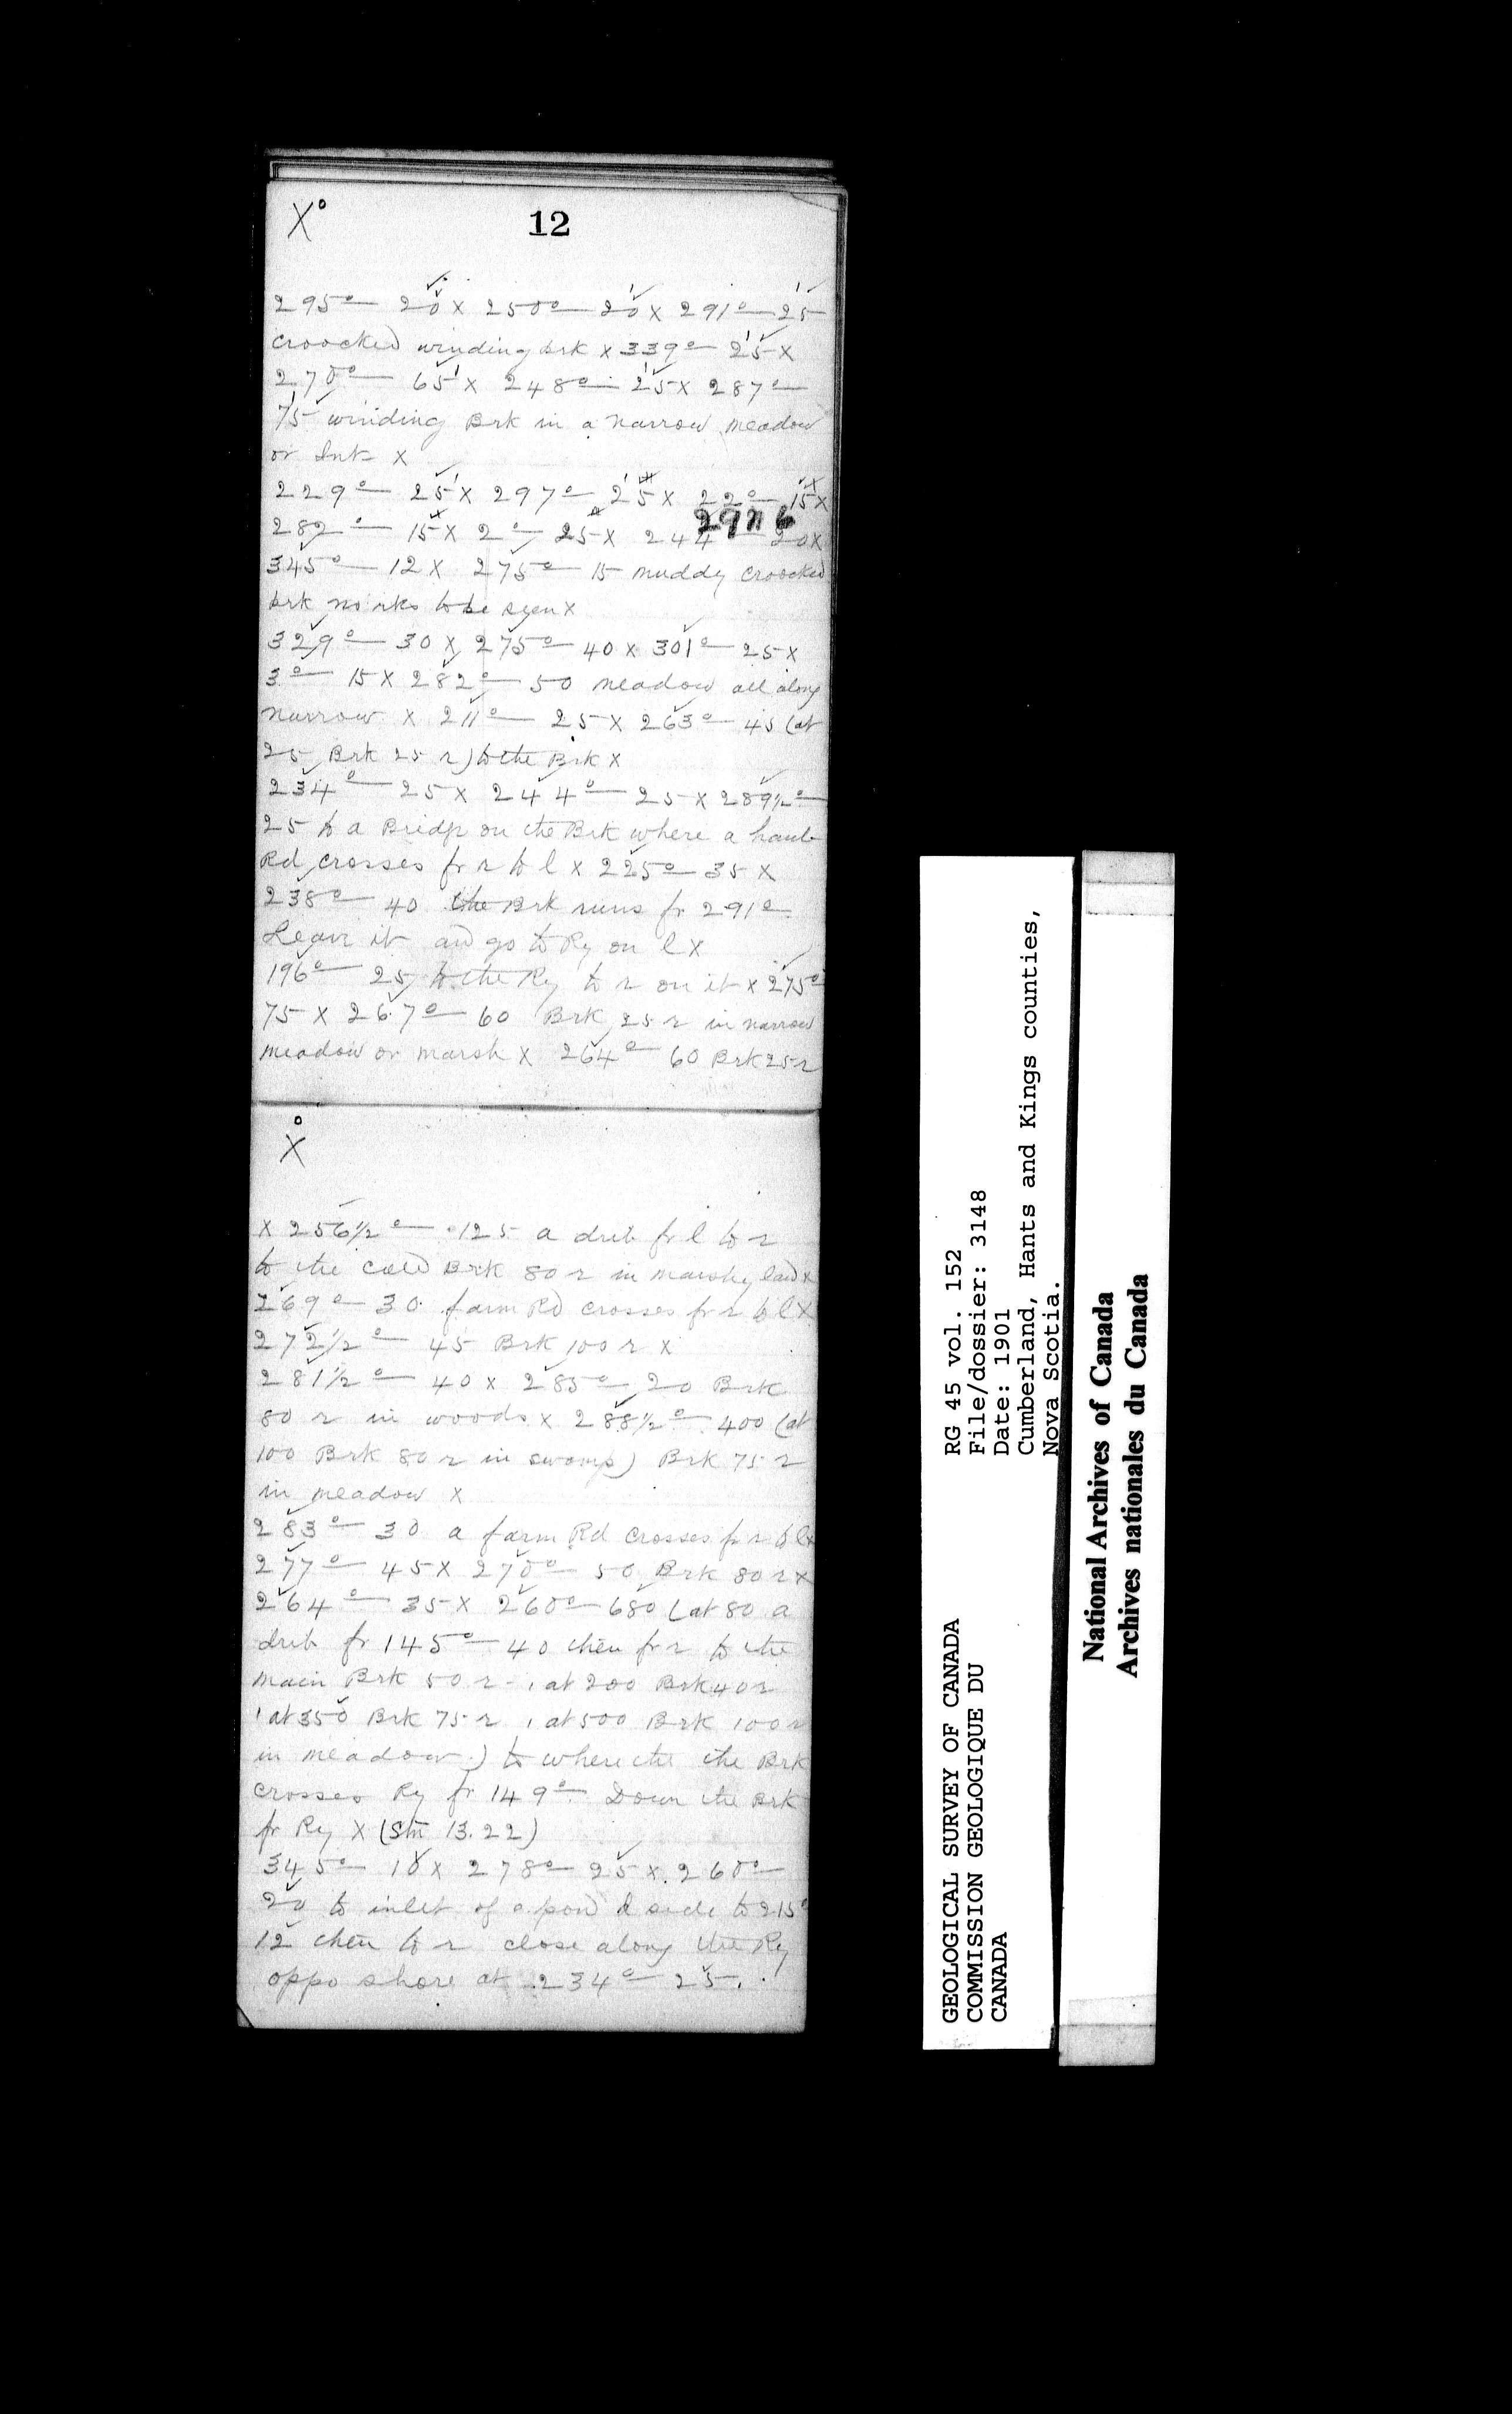 X°
12
295° — 20 X 250° — 20 X 291° — 25
croocked winding brk X 339° — 25 X
270° — 65 X 248° — 25 X 287° —
75 winding Brk in a narrow meadow
or Int X
229° — 25 X 297° — 25 X 22° — 15 X
29N6
282° — 15 X 2° — 25 X 244 — 20 X
345° — 12 X 275° — 15 muddy croocked
brk no rks to be seen X
329° — 30 X 275° — 40 X 301° — 25 X
3° — 15 X 282° — 50 meadow all along
narrow X 211° — 25 X 263° — 45 (at
25 Brk 25 r) to the Brk X
234° — 25 X 244° — 25 X 289 1/2° —
25 to a Bridge on the Brk where a haul
Rd crosses fr r to l X 225° — 35 X
238° — 40 the Brk runs fr 291°
Leave it and go to Ry on l X
196° — 25 to the Ry to r on it X 275°
75 X 267° — 60 Brk 25 r in narrow
meadow or marsh X 264° — 60 Brk 25 r
X°
X 256 1/2° — 125 a drib fr l to r
to the Brk 80 r in marshy land X
269° — 30 farm Rd crosses fr r to l X
272 1/2° — 45 Brk 100 r X
281 1/2° — 40 X 285° — 20 Brk
80 r in woods X 288 1/2° — 400 (at
100 Brk 80 r in swamp) Brk 75 r
in meadow X
283° — 30 a farm Rd crosses fr r to l X
277° — 45 X 270° — 50 Brk 80 r X
264° — 35 X 260° — 680 (at 80 a
drib fr 145° — 40 then fr r to the
main Brk 50 r, at 200 Brk 40 r
, at 350 Brk 75 r, at 500 Brk 100 r
in meadow) to where the the Brk
crosses Ry fr 149° Down the Brk
fr Ry X (Stn 13.22)
345° — 10 X 278° — 25 X 260° —
20 to inlet of a pond l side to 215°
12 then to r close along the Ry
oppo shore at 234° — 25.
GEOLOGICAL SURVEY OF CANADA
COMMISSION GEOLOGIQUE DU
CANADA
RG 45 vol. 152
File/dossier: 3148
Date: 1901
Cumberland, Hants and Kings counties,
Nova Scotia.
National Archives of Canada
Archives nationales du Canada